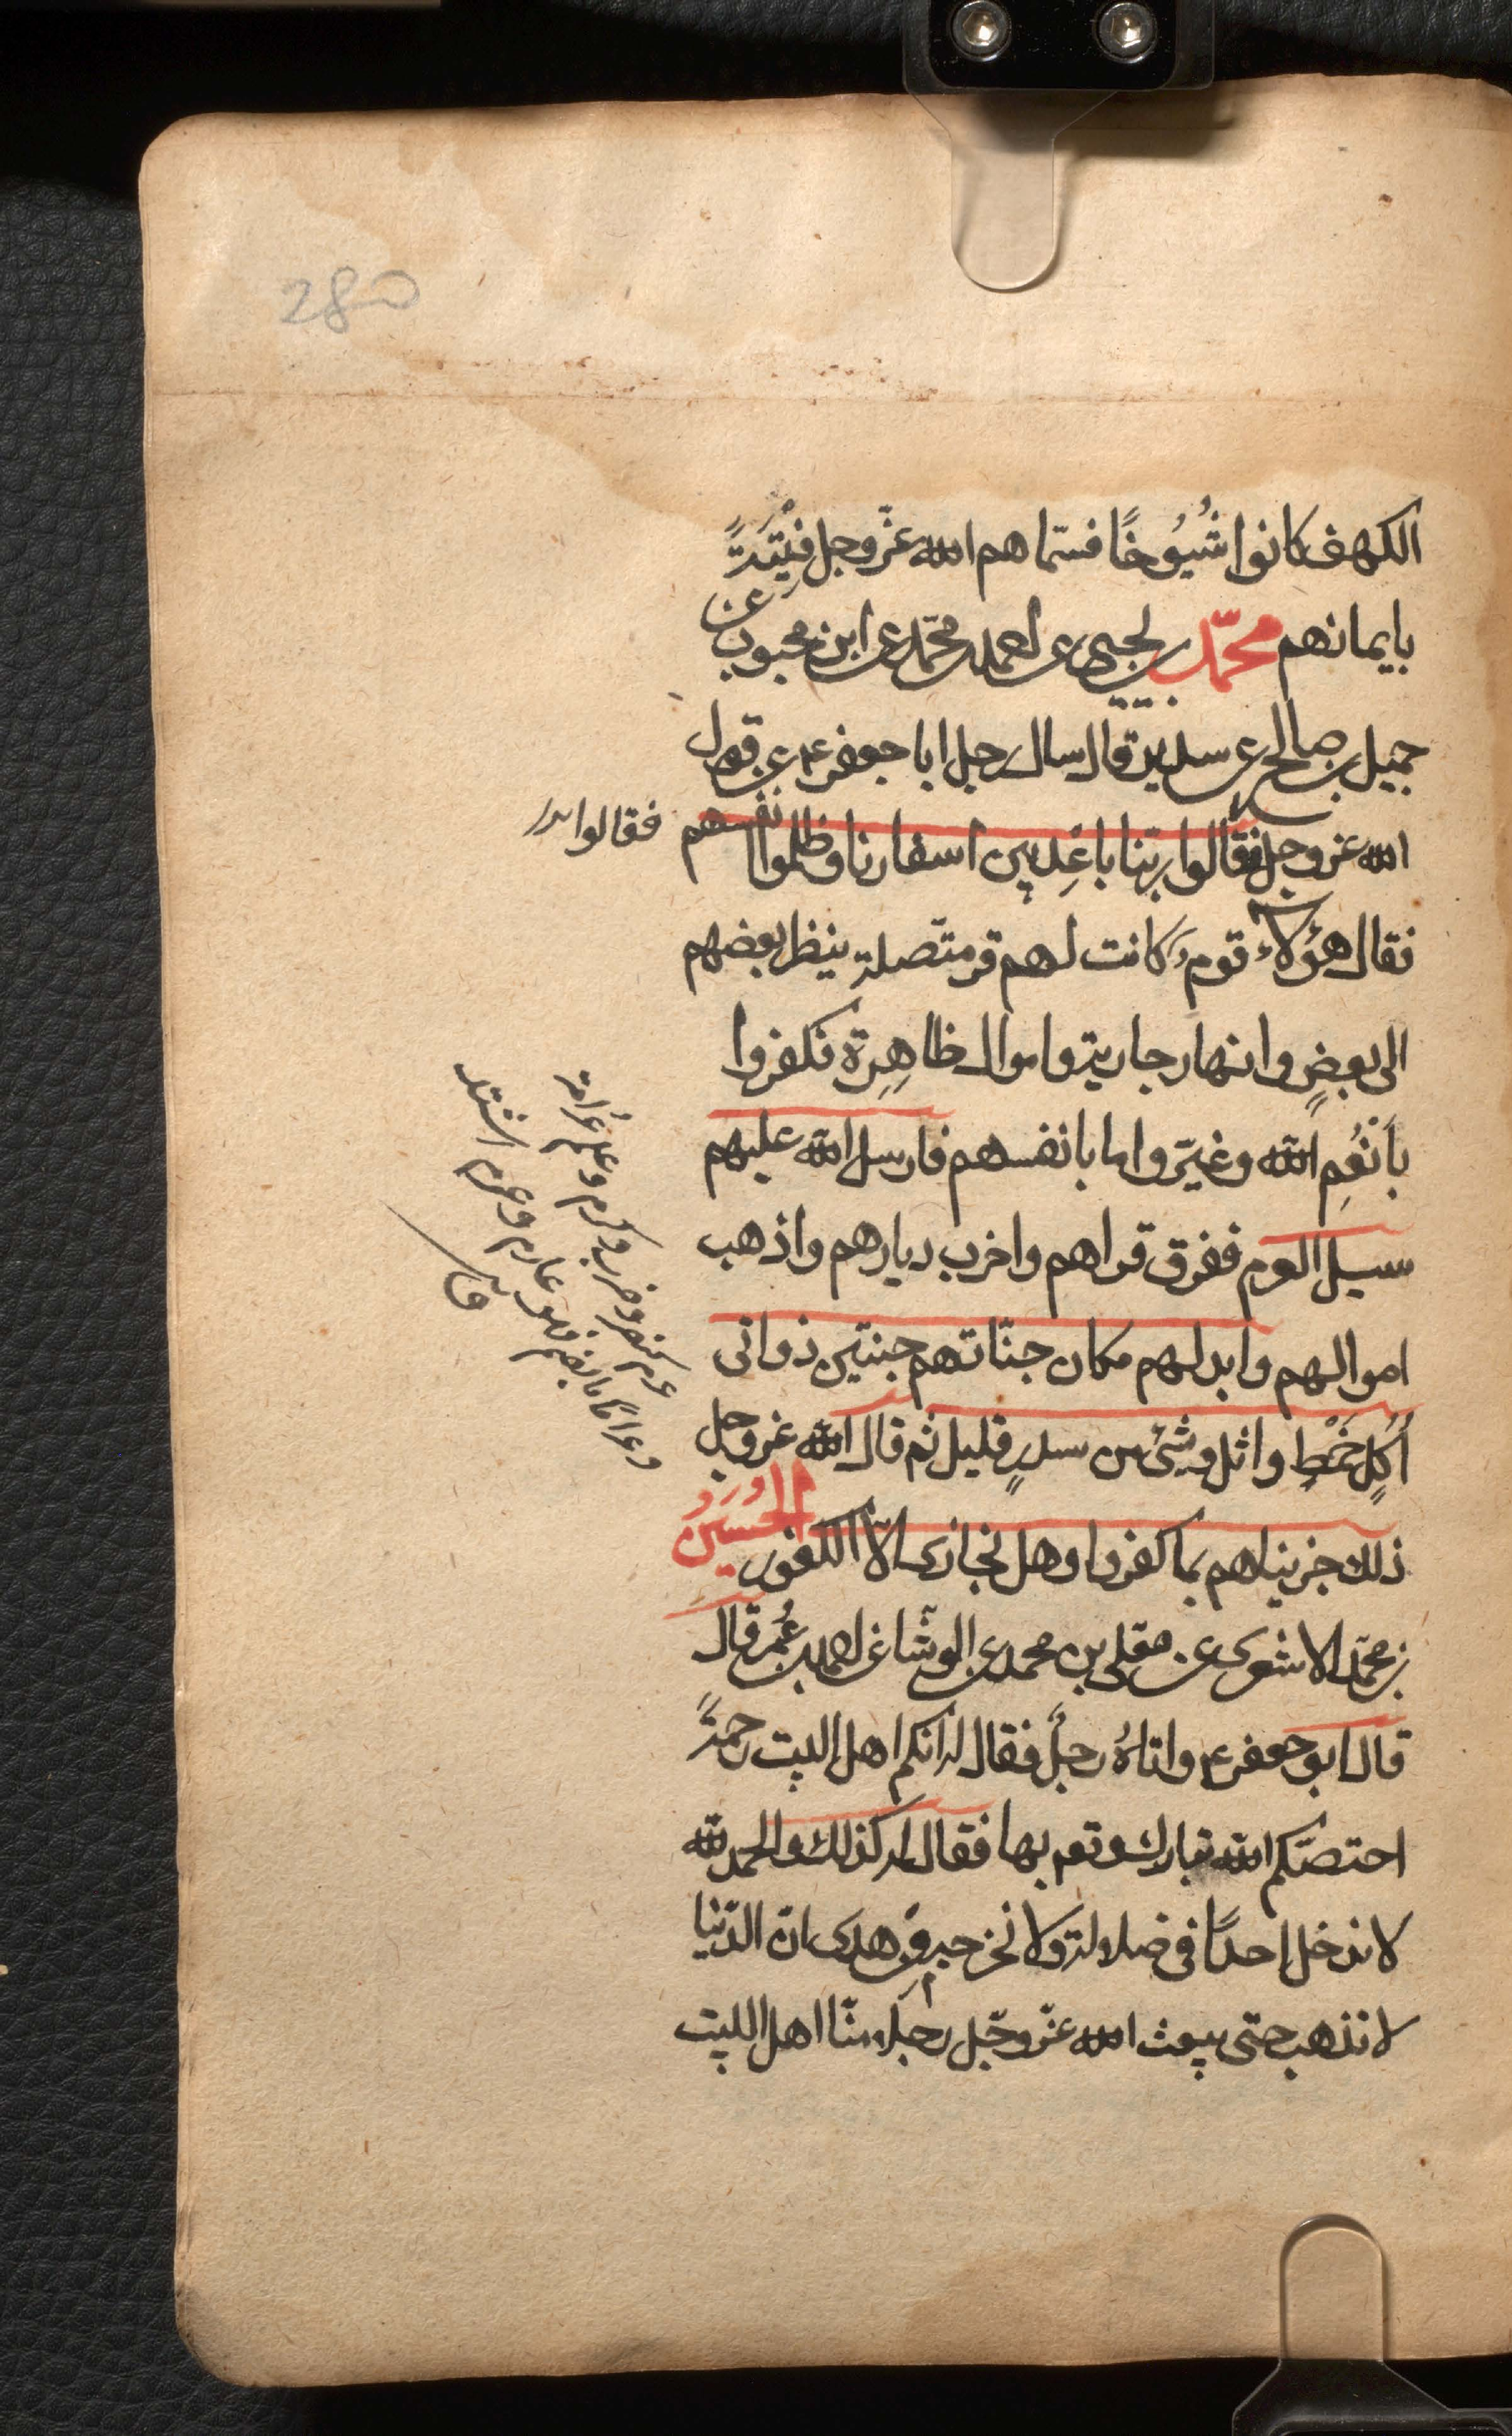 280
الكهف كانوا شُيُوخًا فسمّاهم الله عزّ وجل فِتْيَةً
بايمانهم محمّد بن يحيى عن احمد بن محمّد عن ابن محبوب عن
جميل بن صالح عن سدير قال سال رجل ابا جعفر ع عن قول
الله عز وجل فقالوا ربّنا باعِد بين اسفارنا وظلموا انفسهم
فقالوا
فقال هؤلاء قوم كانت لهم قرى متّصلة ينظر بعضهم
الى بعضٍ وانهار جارية واموال ظاهِرة فكفروا
بأنعُمِ الله وغيّروا ما بانفسهم فارسل الله عليهم
سيل العرم ففرق قراهم واخرب ديارهم واذهب
اموالهم وابدلهم مكان جنّاتهم جنتين ذواتى
أُكلٍ خَمْطٍ واثل وشئ من سدرٍ قليل ثم قال الله عز وجل
ذلك جزيناهم بما كفروا وهل نجازى الّا الكفور الحسين
بن محمّد الاشعرى عن معلى بن محمد عن الوشّا عن احمد بن عُمر قال
قال ابو جعفر ع واتاهُ رجلٌ فقال له انكم اهل البيت رحمةً
اختصّكم الله تبارك وتعم بها فقال له كذلك والحمد لله
لا ندخل احدًا فى ضلالة ولا نخرجه من هدى ان الدّنيا
لا تذهب حتى يبعث الله عزّ وجّل رجلا منّا اهل البيت